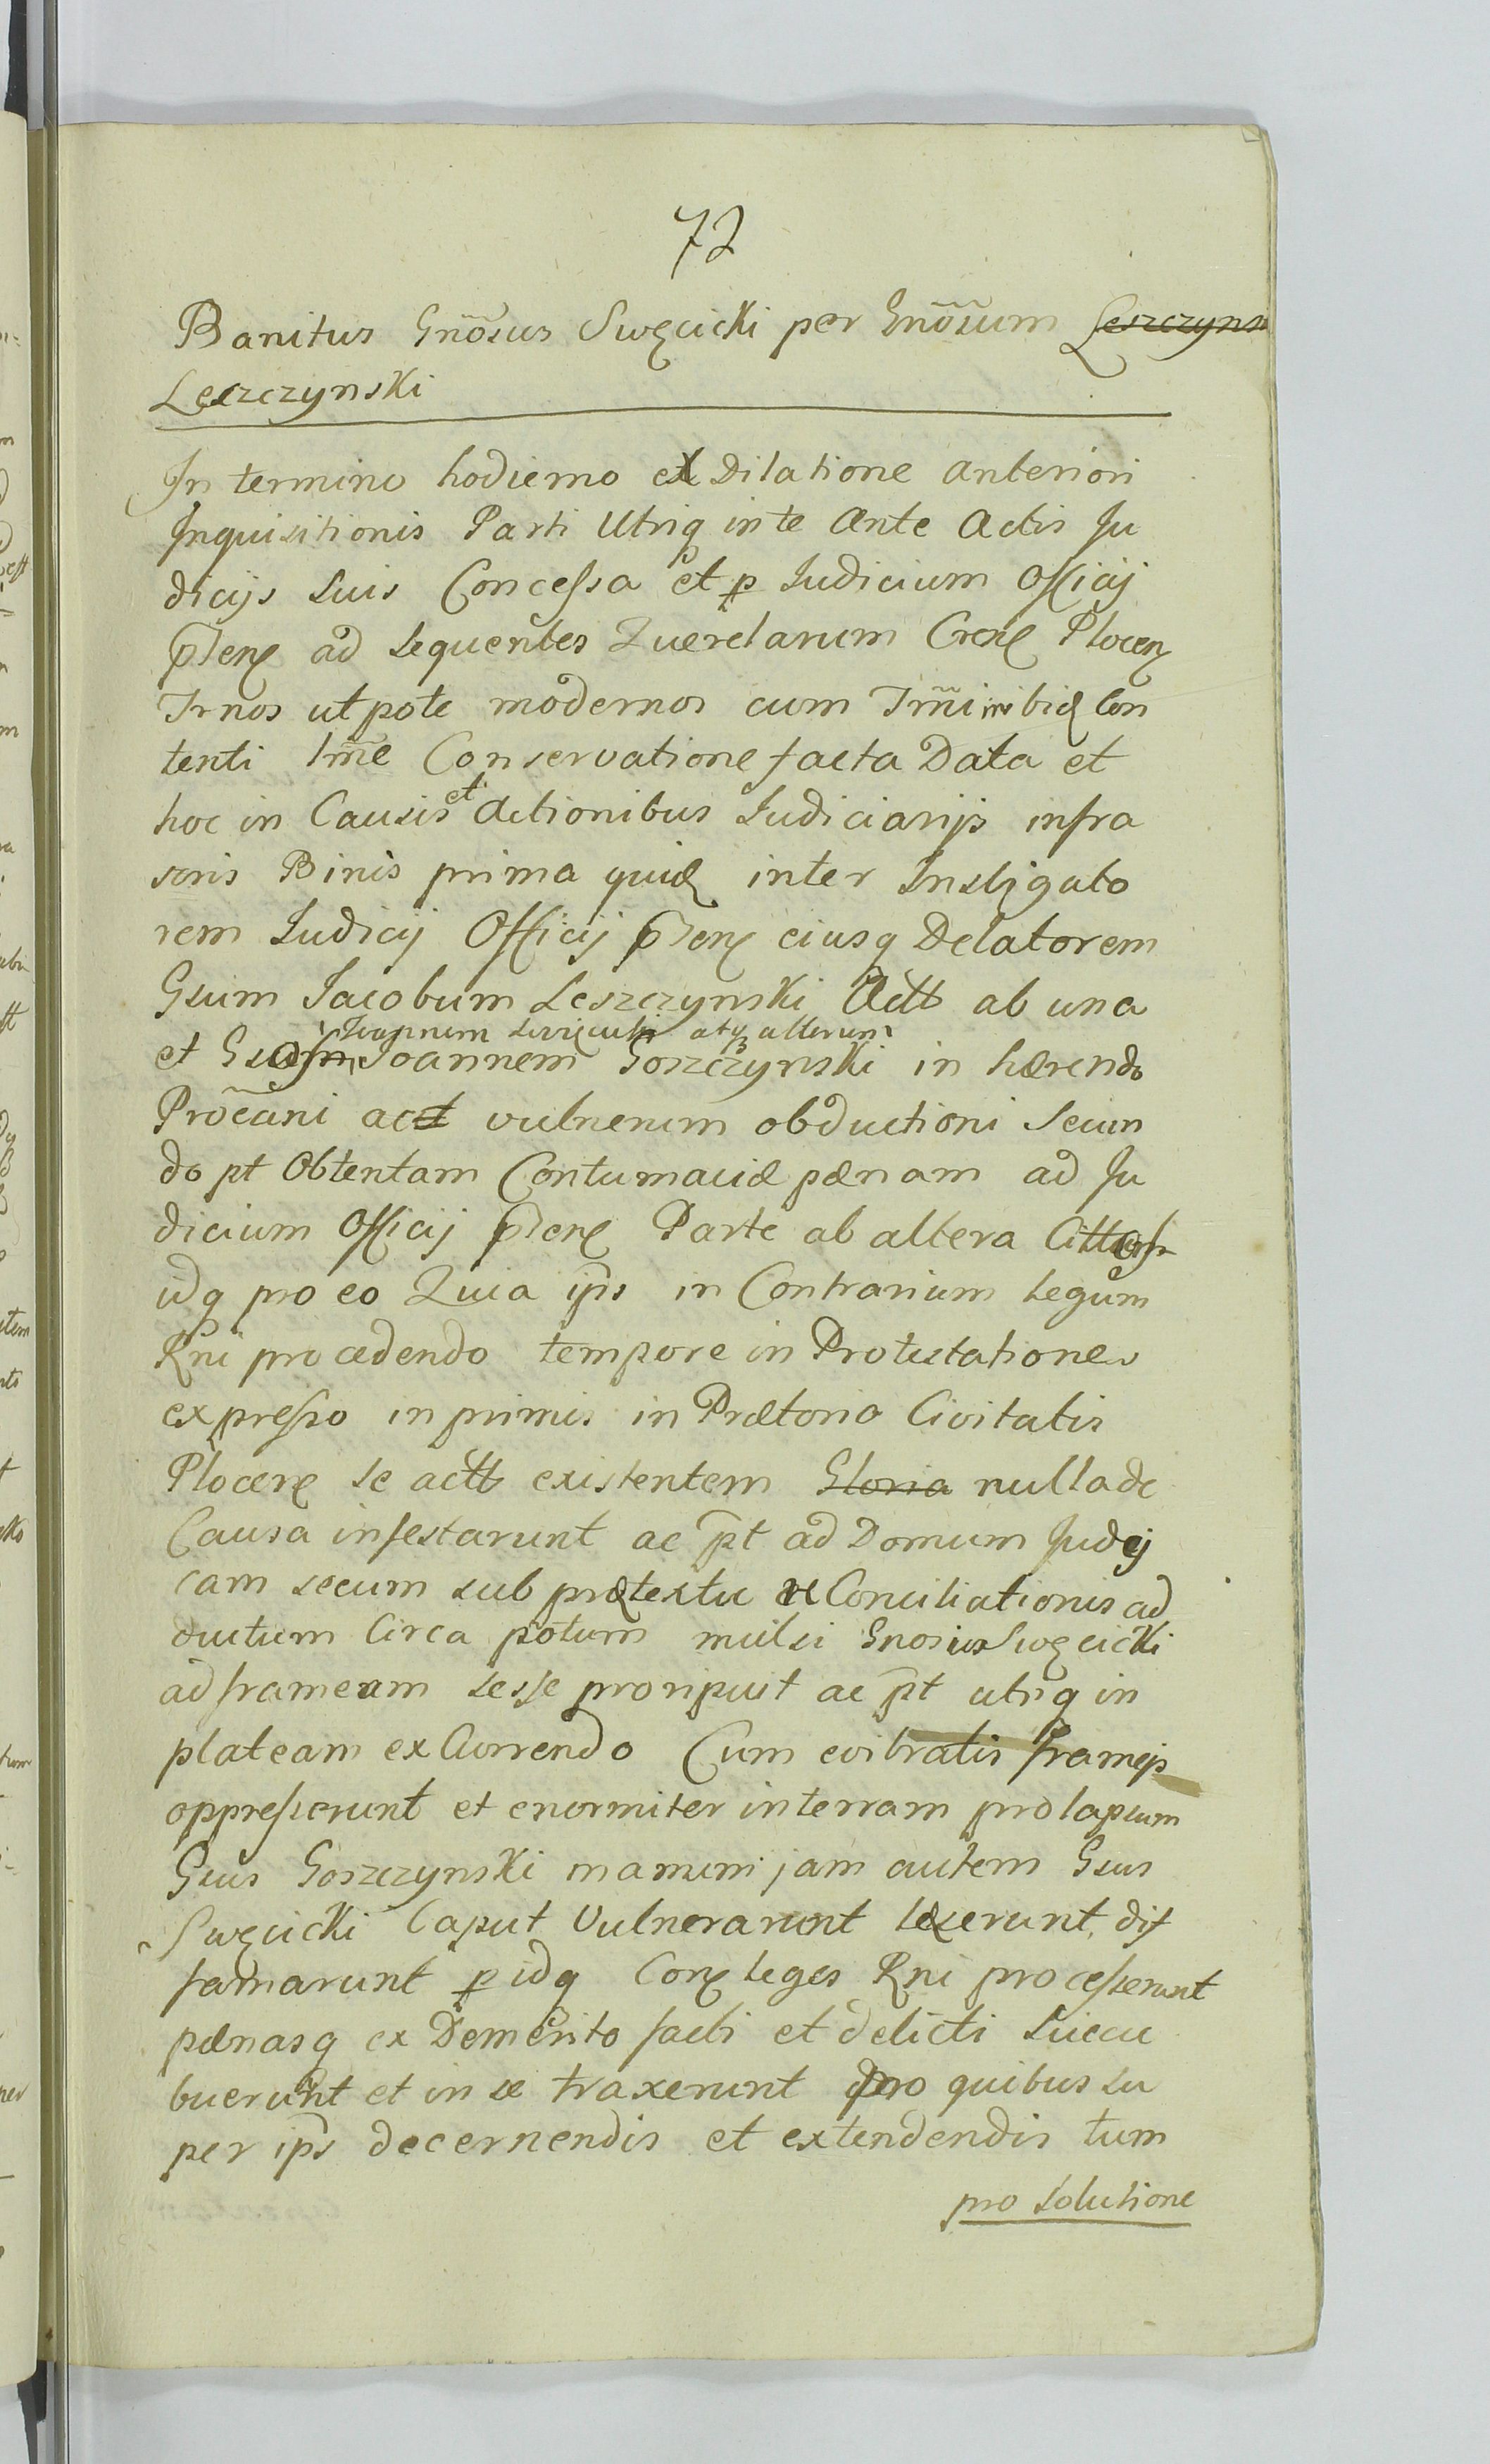 72
Banitus Gnõsus Swęcicki per Gnõsum Leszczyns
Leszczynski
In termino hodierno ex Dilatione anteriori
Inquisitionis Parti Utriq in te Ante Actis Ju
dicijs suis Concessa et p Judicium Officij
ad sequentes Querelarum Plocen
Trnos utpote modernos cum Con
tenti Conservatione facta Data et
hoc in Causis et Actionibus Judiciarijs infra
scris Binis prima quid inter Instigato
rem Judicij Officij eiusq Delatorem
Gsum Jacobum Leszczynski Actt ab una
et Joannem Swięcicki atq alterum Joannem Goszczynski in hærendo
ac vulnerum obductioni Secun
do pt Obtentam Contumaciæ pænam ad Ju
dicium Officij Parte ab altera
idq pro eo Quia ips in Contrarium legum
Rni procedendo tempore in Protestationes
expresso inprimis in Prætorio Civitatis
Plocen se actt existentem Gloria nulla de
Causa infestarunt ac pt ad Domum Judej
cam secum sub prætextu reConciliationis ad
ductum Circa potum mulsi Gnosus Swęcicki
ad frameam sesse proripuit ac pt utriq in
plateam exCurrendo Cum evibratis framejs
oppresserunt et enormiter in terram prolapsum
Gsus Goszczynski manum jam autem Gsus
Swęcicki Caput Vulnerarunt læserunt, dif
famarunt p idq Con leges Rni processerunt
pænasq ex Demerito facti et delicti Succu
buerunt et in se traxerunt pro quibus su
per ips decernendis et extendendis tum
pro solutione